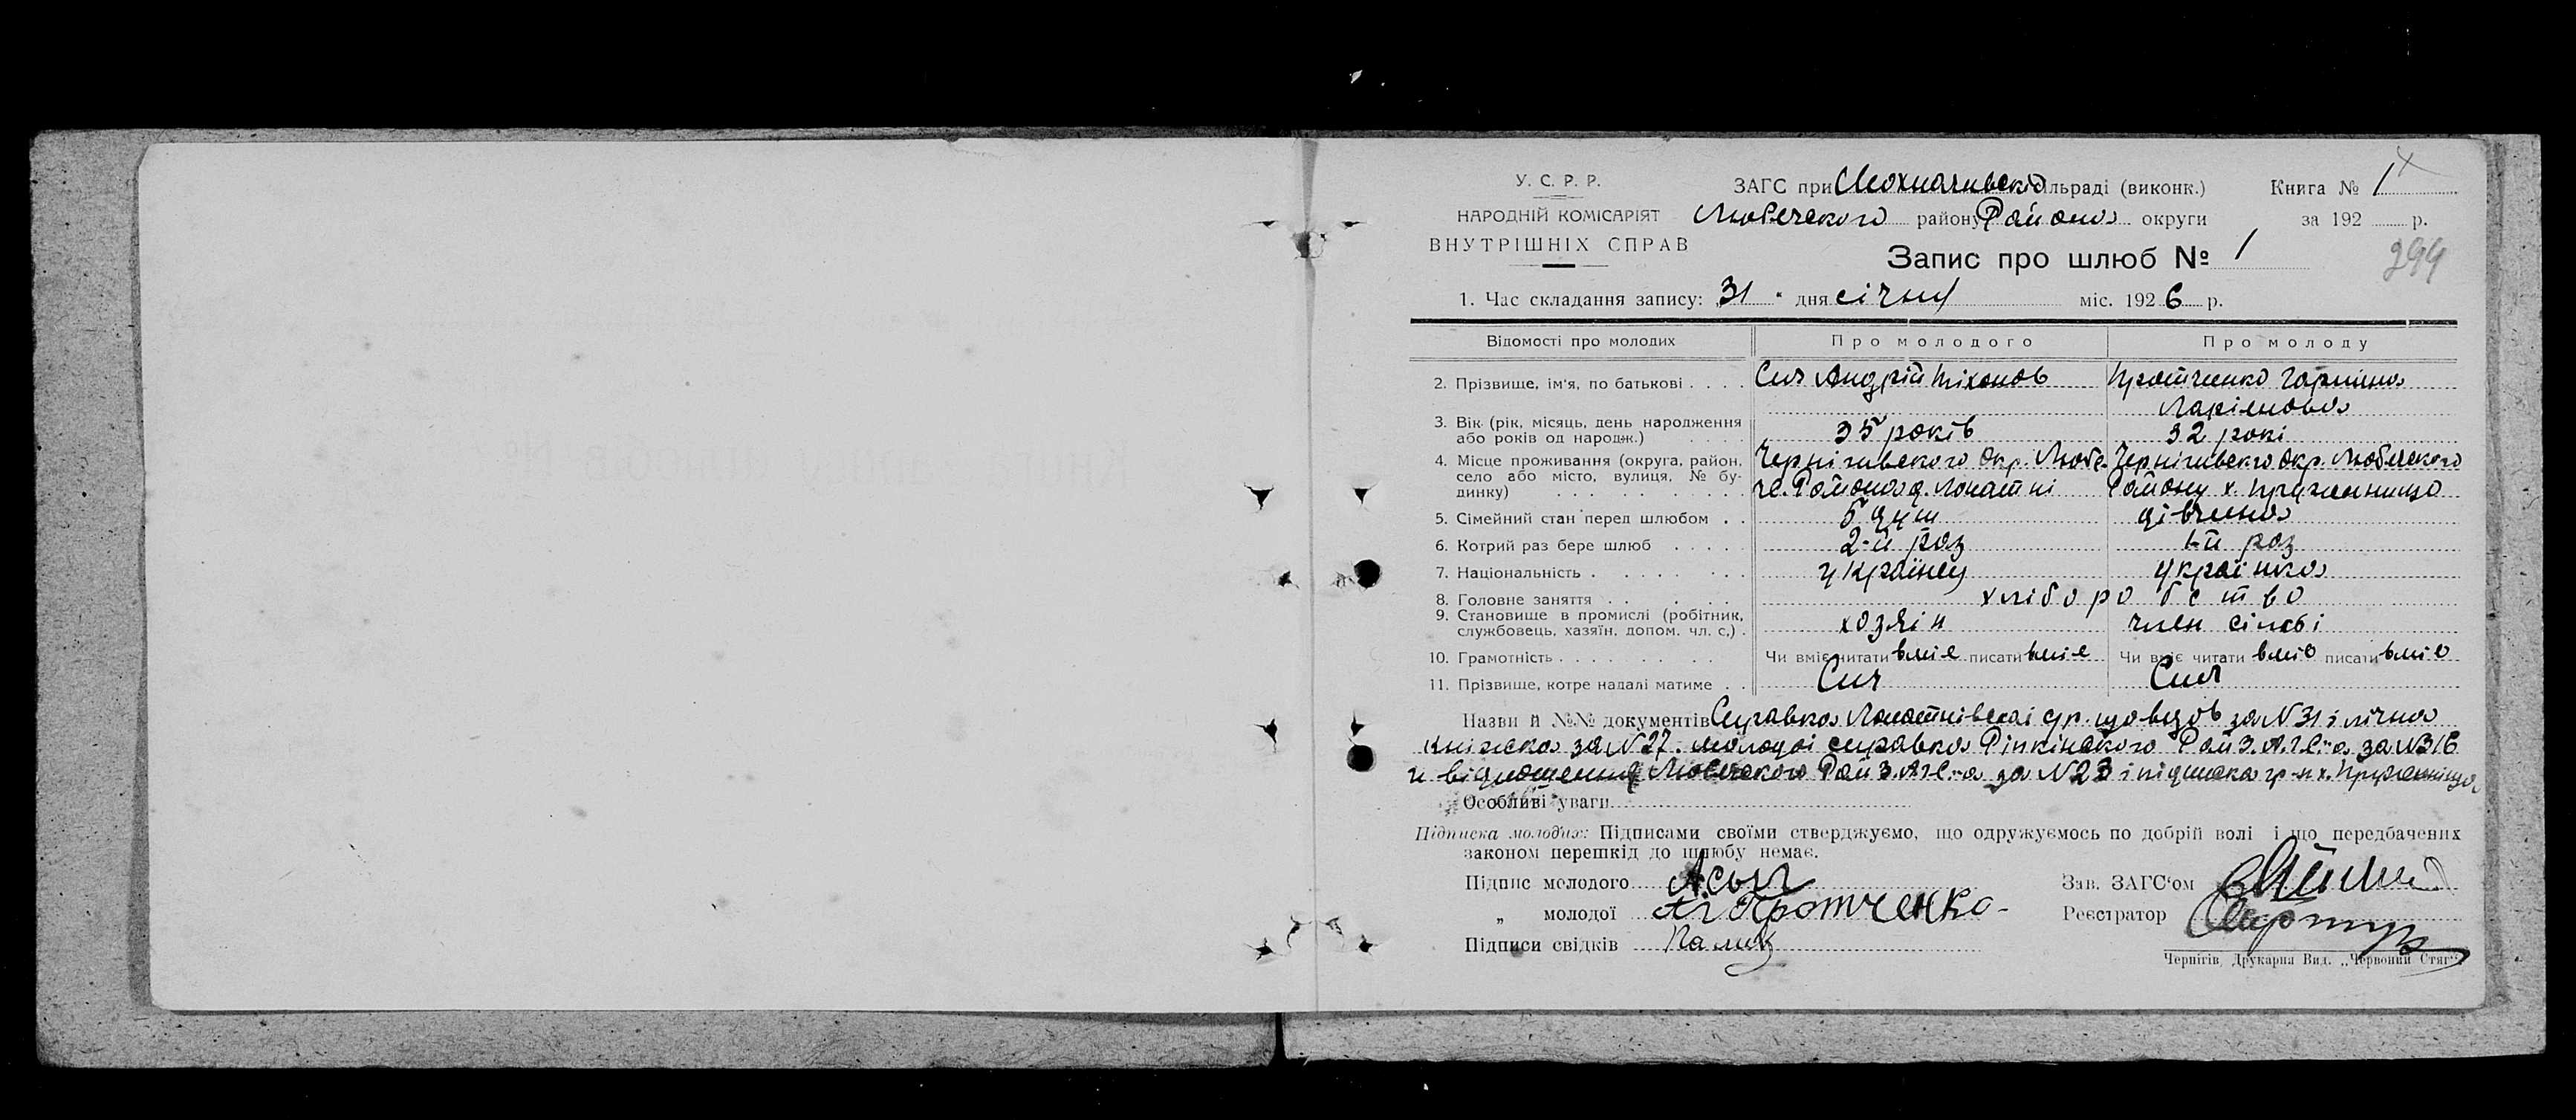 У. С. Р. Р.
НАРОДНІЙ КОМІСАРІЯТ
ВНУТРІШНІХ СПРАВ
ЗАГС при Мохначивской сільраді (виконк.)
Любечского району Района округи
Книга № 1
за 192 р.
Запис про шлюб № 1
299
1. Час складання запису: 31 " дня січня міс. 1926 р.
Відомості про молодих Про молодого Про молоду
2. Прізвище, ім'я, по батькові . . . . Сич Андрій Тіхонов Протченко Горпина
Ларіонова
3. Вік (рік, місяць, день народження або років од народж.) . . . . 35 років 32 рокі
4. Місце проживання (округа, район, село або місто, вулиця, № будинку) . . . . Чернігивского Окр. Любе- Чернігивского Окр. Любечского
чс. Района д. Лопатні Району х. Пружанищо
5. Сімейний стан перед шлюбом . . 5 душ дівчина
6. Котрий раз бере шлюб . . . . . 2-й раз 1-й раз
7. Національність . . . . . . . українец українка
8. Головне заняття . . . . . хліборобство
9. Становище в промислі (робітник, службовець, хазяїн, допом. чл. с.) . хозяін член сімьі
10. Грамотність . . . . . . . Чи вміє читати вміє писати вміє Чи вміє читати вміє писати вміє
11. Прізвище, котре надалі матиме . . Сич Сич
Назви й №№ документів Справка Лопатнівскаі ср. що за N 31 і лічна
книжка за N 27. молодоі справка Ріпкінского Рай З.А.Г.С-а за N 316
и відношення Любечского Рай З.А.Г.С-а за N 23 і підписка гр-н х. Пружанищо
Особливі уваги
Підписка молодих: Підписами своїми стверджуємо, що одружуємось по добрій волі і що передбачених
законом перешкід до шлюбу немає.
Підпис молодого А. Сыч
„ молодої Протченко
Підписи свідків
Зав. ЗАГС'ом
Реєстратор
Чернігів, Друкарня Вид. „Червоний Стяг".